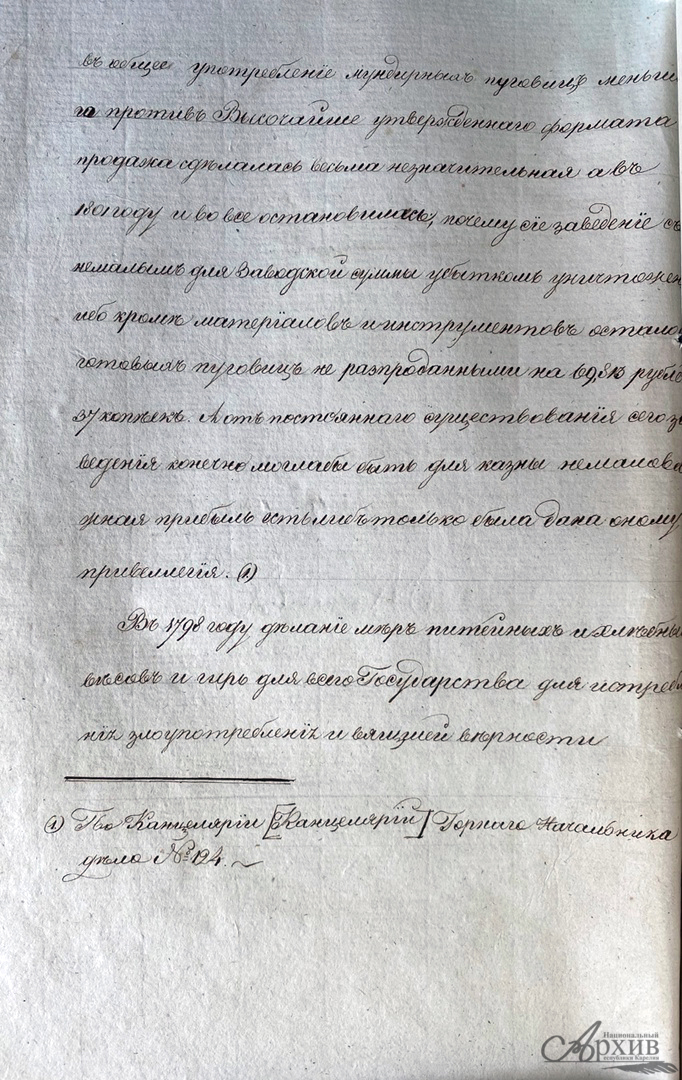 въ общее употребленіе мундирныхъ пуговицъ меньша
го противъ Высочайше утвержденнаго формата
продажа сдѣлалась весьма незначительная а въ
1801 году и вовсе остановилась, почему сіе заведеніе съ
немалымъ для Заводской суммы убыткомъ уничтожен
ибо кромѣ матеріаловъ и инструментовъ остало
готовыхъ пуговицъ не разпроданными на рубл
37 копѣекъ. А отъ постояннаго существованія сего за
веденія конечно моглабы быть для казны немалова
жная прибыль естьлибъ только была дана оному
привеллегія. (1)
Въ 1798 году дѣланіе мѣръ питейныхъ и хлѣбны
вѣсовъ и гирь для всего Государства для истребле
ніѧ злоупотребленіѧ и вящшей вѣрности
1) По Канцеляріи [Канцелярій] Горнаго Начальника
дѣло № 194.
Национальный
АРХИВ
республики Карелия